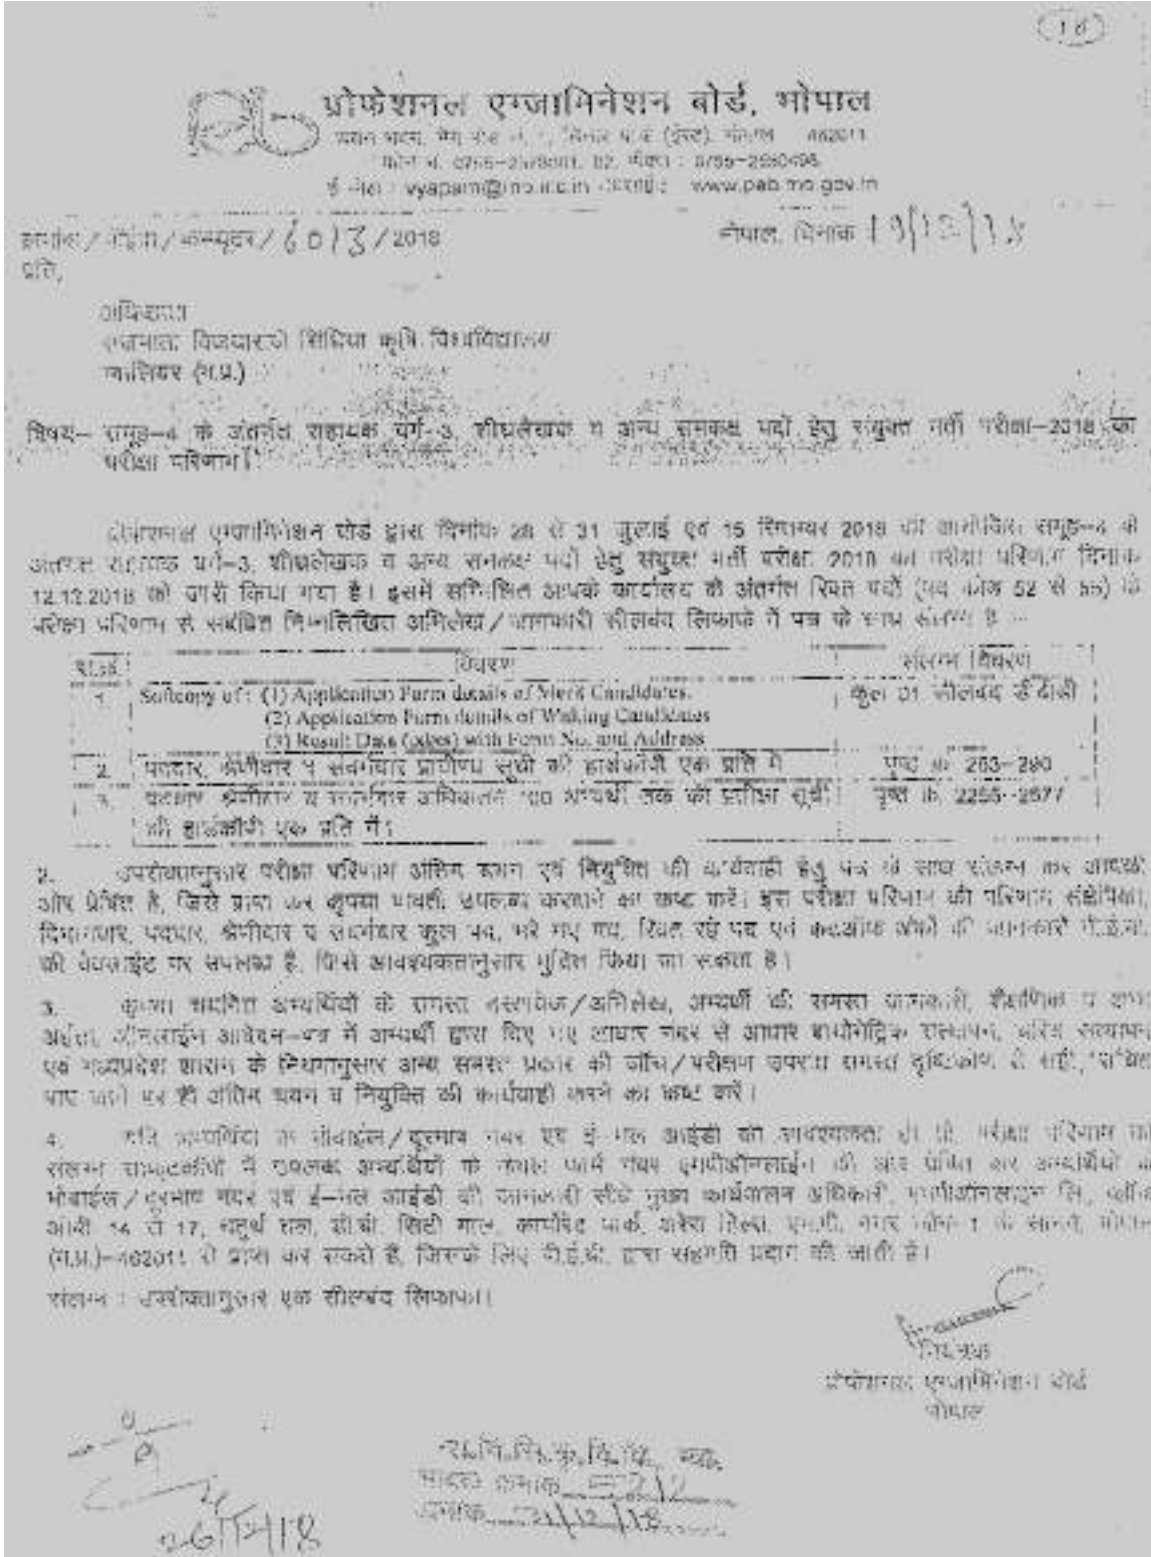 प्रोफेशनल एग्जामिनेशन बोर्ड, भोपाल
462011
vyapam@mp.nic.in www.peb.mp.gov.in
/ 6013 / 2018 भोपाल, दिनांक 19/12/18
प्रति,
राजमाता विजयाराजे सिंधिया कृषि विश्वविद्यालय
ग्वालियर (म.प्र.)
विषय– समूह–4 के अंतर्गत सहायक वर्ग–3, शीघ्रलेखक व अन्य समकक्ष पदों हेतु संयुक्त भर्ती परीक्षा–2018 का
परीक्षा परिणाम।
प्रोफेशनल एग्जामिनेशन बोर्ड द्वारा दिनांक 28 से 31 जुलाई एवं 15 सितम्बर 2018 को आयोजित समूह–4 के
अंतर्गत सहायक वर्ग–3, शीघ्रलेखक व अन्य समकक्ष पदों हेतु संयुक्त भर्ती परीक्षा 2018 का परीक्षा परिणाम दिनांक
12.12.2018 को जारी किया गया है। इसमें सम्मिलित आपके कार्यालय के अंतर्गत रिक्त पदों (पद कोड 52 से 55) के
परीक्षा परिणाम से संबंधित निम्नलिखित अभिलेख/जानकारी सीलबंद लिफाफे में पत्र के साथ संलग्न है –
विवरण संलग्न विवरण
1. Softcopy of : (1) Application Form details of Merit Candidates. कुल 01 सीलबंद डीवीडी
(2) Application Form details of Waiting Candidates
(3) Result Data with Form No. and Address
2. पदवार, श्रेणीवार व संवर्गवार प्रावीण्य सूची की हार्डकॉपी एक प्रति में पृष्ठ क्र 263–290
3. पदवार श्रेणीवार व संवर्गवार अधिकतम 100 अभ्यर्थी तक की प्रतीक्षा सूची पृष्ठ क्र. 2255–2577
की हार्डकॉपी एक प्रति में।
2. उपरोक्तानुसार परीक्षा परिणाम अंतिम चयन एवं नियुक्ति की कार्यवाही हेतु पत्र के साथ संलग्न कर आपकी
ओर प्रेषित है, जिसे प्राप्त कर कृपया पावती उपलब्ध करवाने का कष्ट करें। इस परीक्षा परिणाम की परिणाम संक्षेपिका,
विभागवार, पदवार, श्रेणीवार व संवर्गवार कुल पद, भरे गए पद, रिक्त रहे पद एवं कटऑफ अंकों की जानकारी पी.ई.बी.
की वेबसाईट पर उपलब्ध है, जिसे आवश्यकतानुसार मुद्रित किया जा सकता है।
3. कृपया चयनित अभ्यर्थियों के समस्त दस्तावेज/अभिलेख, अभ्यर्थी की समस्त जानकारी, शैक्षणिक व अन्य
अर्हता, ऑनलाईन आवेदन–पत्र में अभ्यर्थी द्वारा दिए गए आधार नंबर से आधार बायोमेट्रिक सत्यापन, चरित्र सत्यापन
एवं मध्यप्रदेश शासन के नियमानुसार अन्य समस्त प्रकार की जाँच/परीक्षण उपरांत समस्त दृष्टिकोण से सही/उचित
पाए जाने पर ही अंतिम चयन व नियुक्ति की कार्यवाही करने का कष्ट करें।
4. यदि अभ्यर्थियों के मोबाईल/दूरभाष नंबर एवं ई–मेल आईडी की आवश्यकता हो तो, परीक्षा परिणाम की
संलग्न साफ्टकॉपी में उपलब्ध अभ्यर्थियों के केवल फार्म नंबर एमपीऑनलाईन की ओर प्रेषित कर अभ्यर्थियों के
मोबाईल/दूरभाष नंबर एवं ई–मेल आईडी की जानकारी सीधे मुख्य कार्यपालन अधिकारी, एमपीऑनलाइन लि.,
14 से 17, चतुर्थ तल, डी.बी. सिटी माल, कार्पोरेट पार्क, अरेरा हिल्स, एम.पी. नगर जोन–1 के सामने, भोपाल
(म.प्र.)–462011 से प्राप्त कर सकते हैं, जिसके लिए पी.ई.बी. द्वारा सहमति प्रदान की जाती है।
संलग्न : उपरोक्तानुसार एक सीलबंद लिफाफा।
नियंत्रक
प्रोफेशनल एग्जामिनेशन बोर्ड
भोपाल
रा.वि.सि.कृ.वि.वि. ग्वा.
आवक क्रमांक 5212
दिनांक 21/12/18
26/12/18